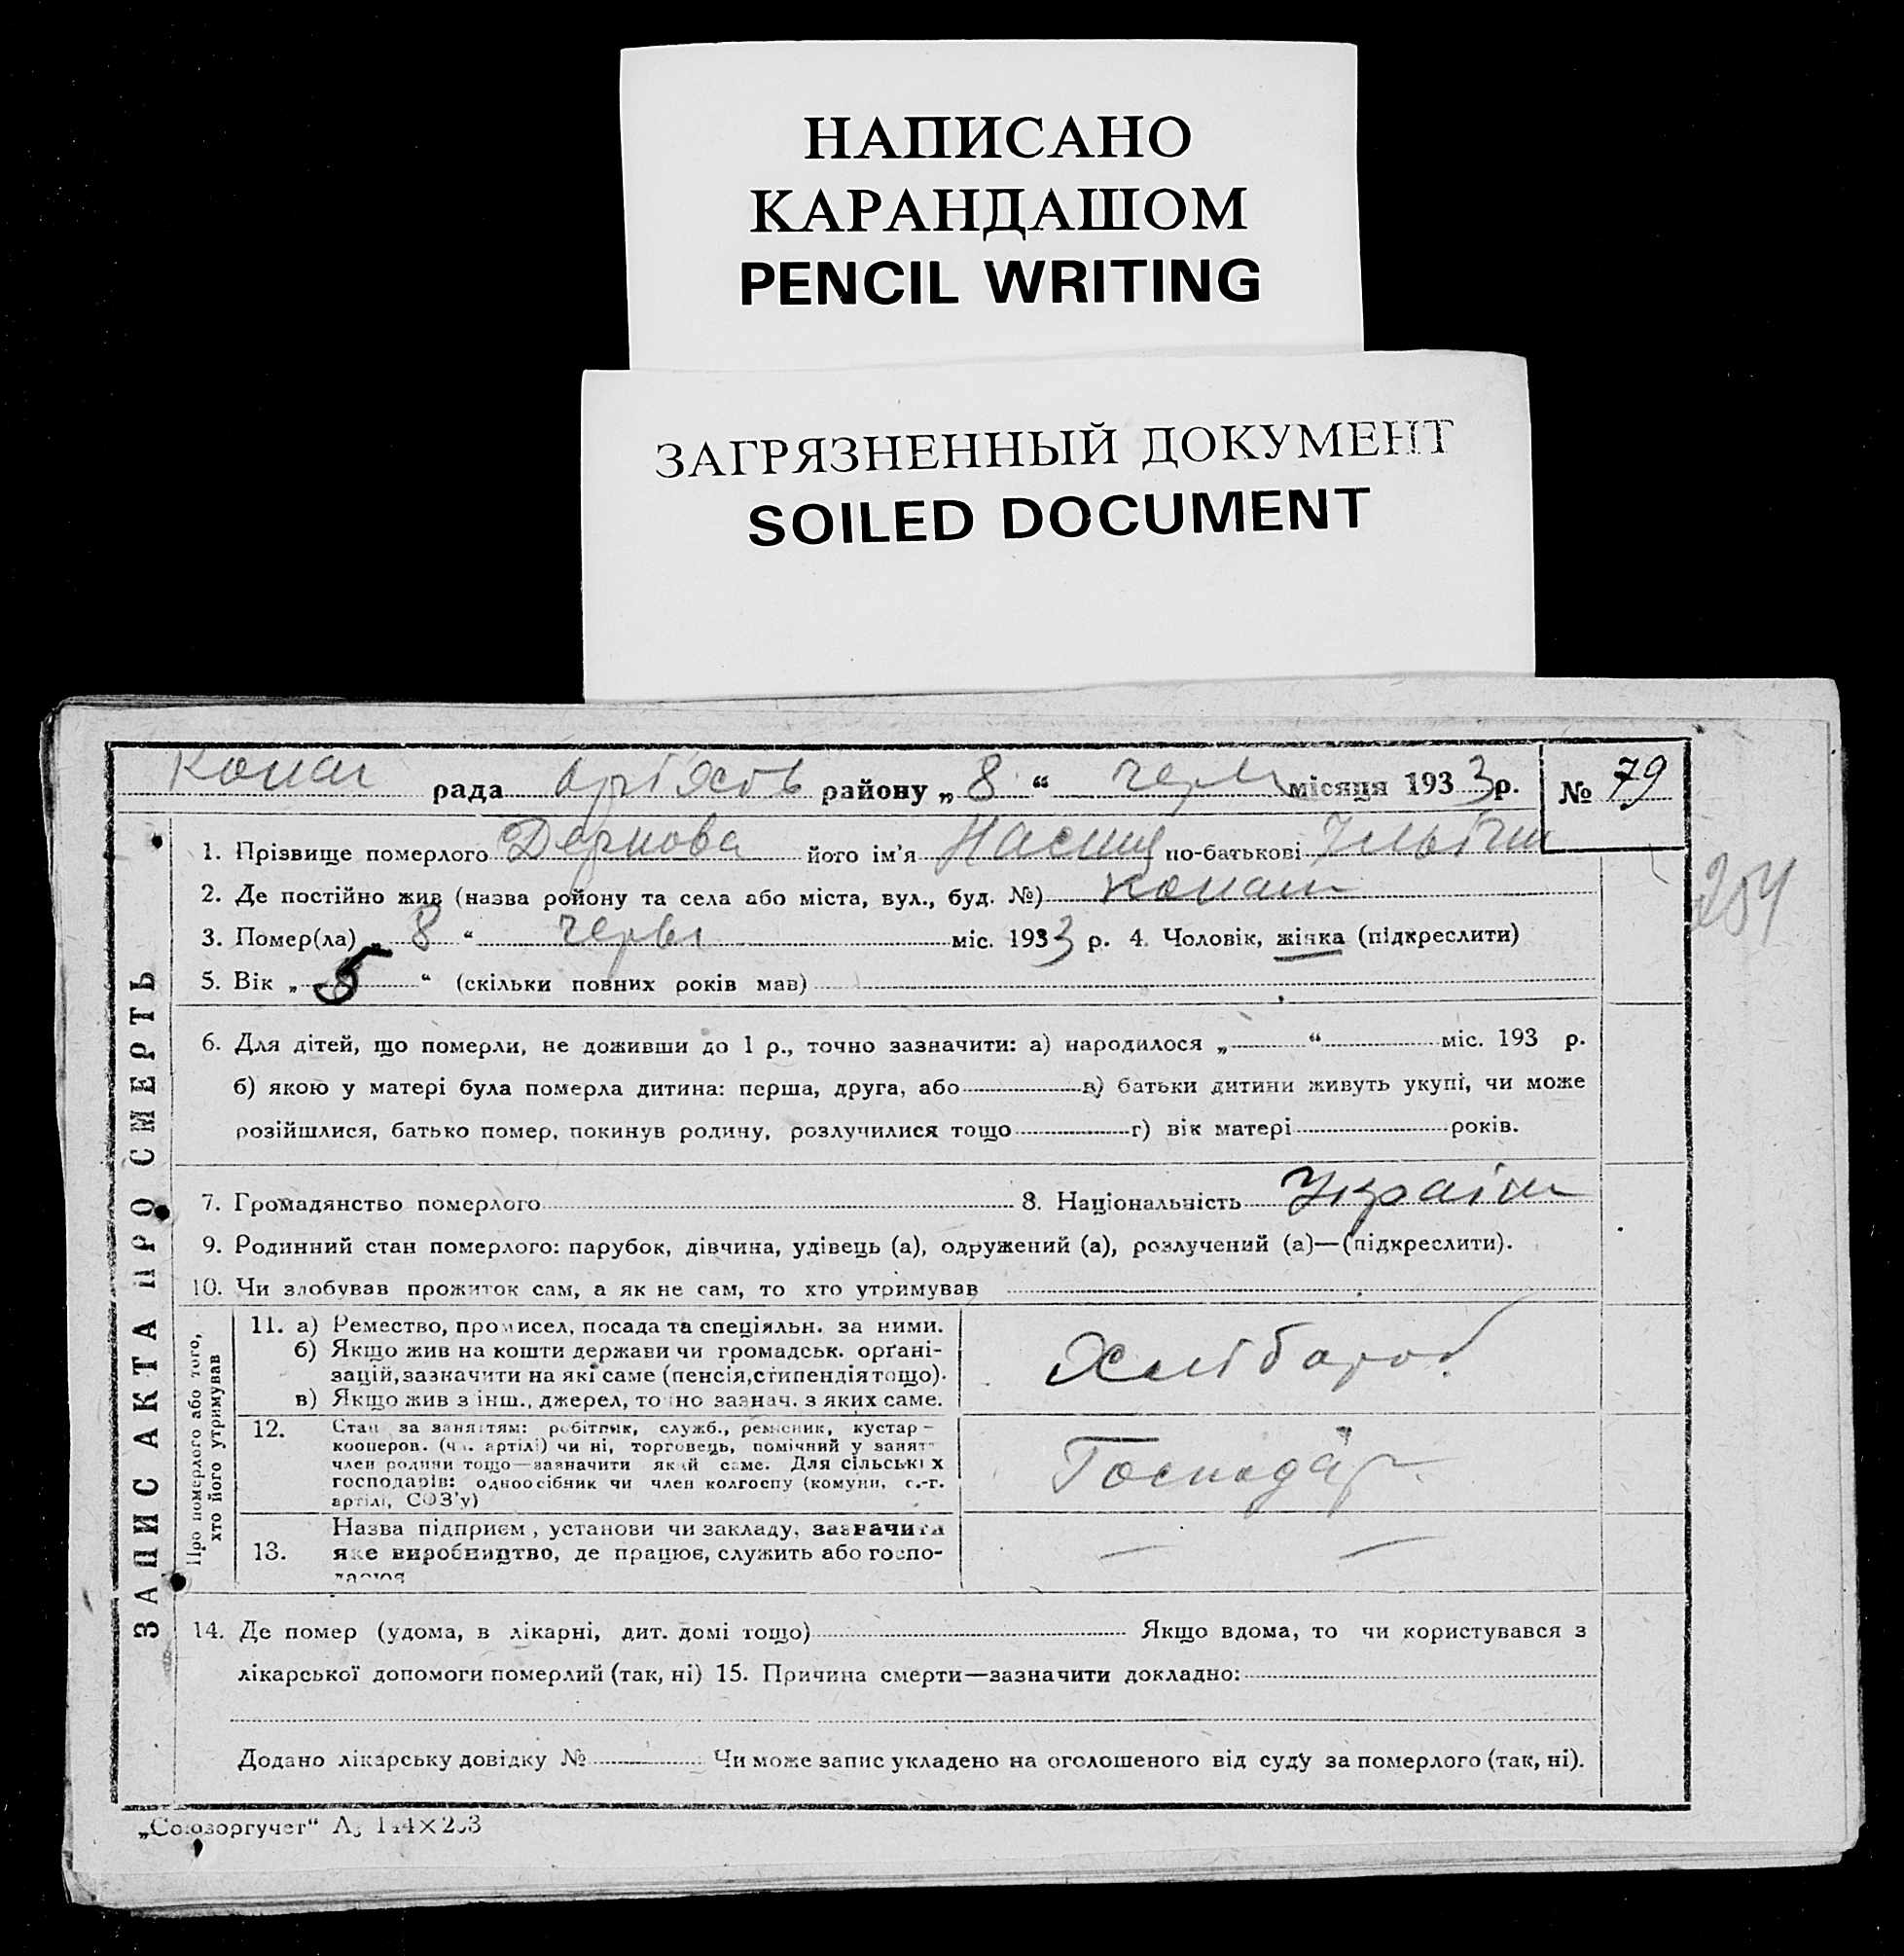 НАПИСАНО
КАРАНДАШОМ
PENCIL WRITING
ЗАГРЯЗНЕННЫЙ ДОКУМЕНТ
SOILED DOCUMENT
рада району „ 8 “ черв місяця 1933 р. № 79
1. Прізвище померлого його ім'я Настя по-батькові
204
2. Де постійно жив (назва ройону та села або міста, вул., буд. №)
3. Помер(ла) „ 8 “ черв міс. 1933 р. 4. Чоловік, жінка (підкреслити)
5. Вік „ 5 “ (скільки повних років мав)
6. Для дітей, що померли, не доживши до 1 р., точно зазначити: а) народилося „ “ міс. 193 р.
б) якою у матері була померла дитина: перша, друга, або в) батьки дитини живуть укупі, чи може
розійшлися, батько помер, покинув родину, розлучилися тощо г) вік матері років.
7. Громадянство померлого 8. Національність Україн
9. Родинний стан померлого: парубок, дівчина, удівець (а), одружений (а), розлучений (а)—(підкреслити).
10. Чи здобував прожиток сам, а як не сам, то хто утримував
ЗАПИС АКТА ПРО СМЕРТЬ
Про померлого або того,
хто його утримував
11. а) Ремество, промисел, посада та спеціяльн. за ними.
б) Якщо жив на кошти держави чи громадськ. орґані-
зацій, зазначити на які саме (пенсія, стипендія тощо).
в) Якщо жив з інш., джерел, точно зазнач. з яких саме.
Хлібароб
12. Стан за заняттям: робітник, служб., ремісник, кустар-
кооперов. (чл. артілі) чи ні, торговець, помічний у занятт
член родини тощо—зазначити який саме. Для сільських
господарів: одноосібник чи член колгоспу (комуни, с.-г.
артілі, СОЗ'у)
Господар
13. Назва підприєм, установи чи закладу, зазначити
яке виробництво, де працює, служить або госпо-
дарює
— —
14. Де помер (удома, в лікарні, дит. домі тощо) Якщо вдома, то чи користувався з
лікарської допомоги померлий (так, ні) 15. Причина смерти—зазначити докладно:
Додано лікарську довідку № Чи може запис укладено на оголошеного від суду за померлого (так, ні).
„Союзоргучет“